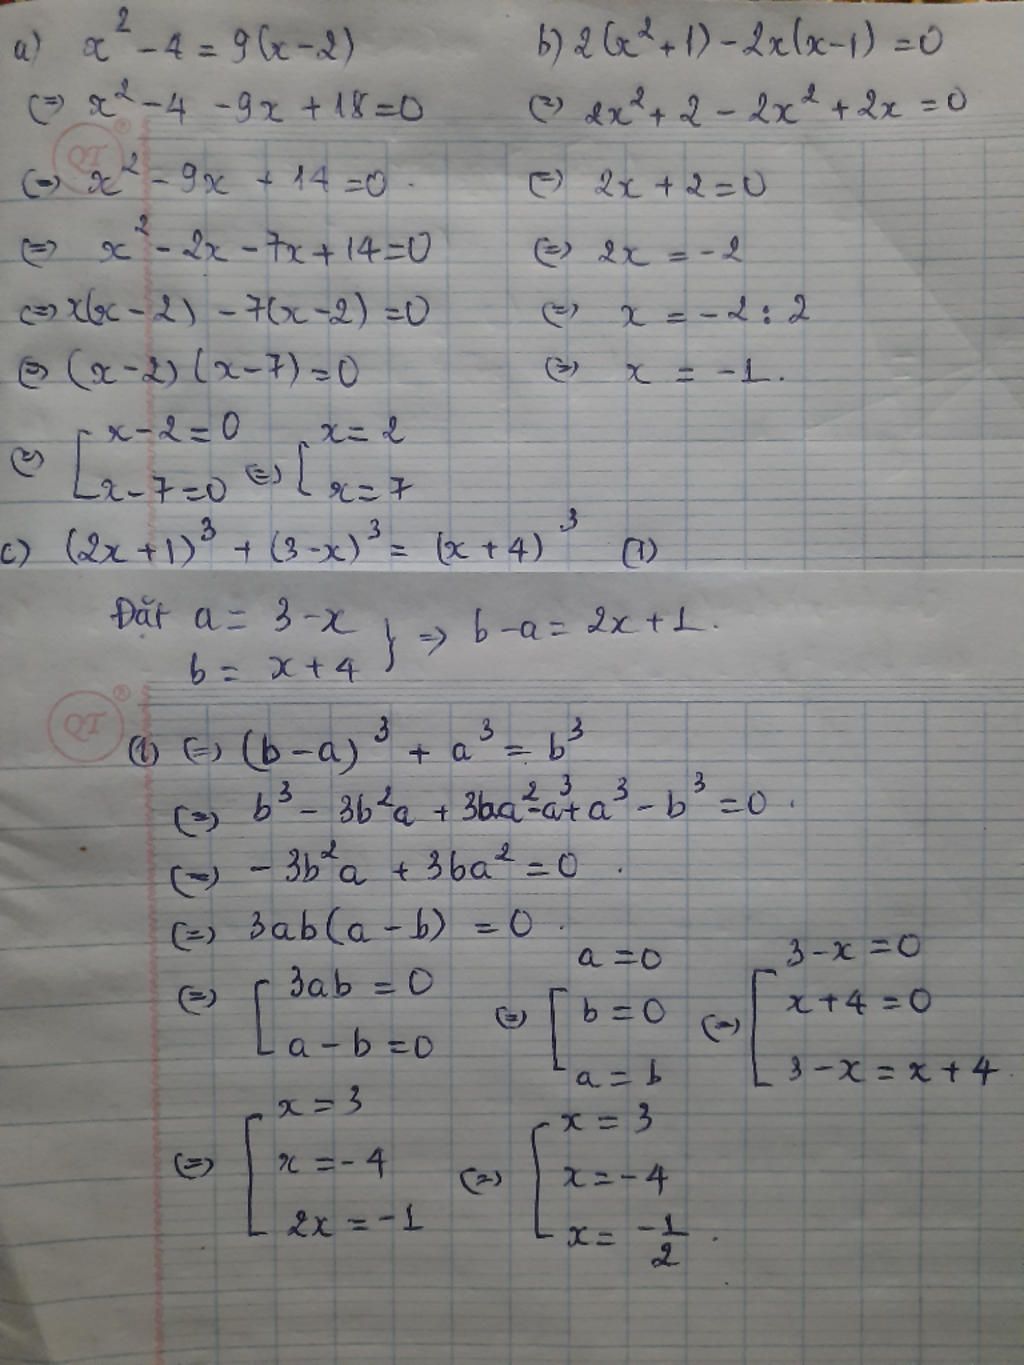 a) x² - 4 = 9(x-2)
(=) x² - 4 - 9x + 18 = 0
(=) x² - 9x + 14 = 0.
(=) x² - 2x - 7x + 14 = 0
(=) x(x-2) - 7(x-2) = 0
(=) (x-2)(x-7) = 0
(=) [ x-2 = 0
x-7 = 0 (=) [ x = 2
x = 7
b) 2(x²+1) - 2x(x-1) = 0
(=) 2x² + 2 - 2x² + 2x = 0
(=) 2x + 2 = 0
(=) 2x = -2
(=) x = -2 : 2
(=) x = -1.
c) (2x+1)³ + (3-x)³ = (x+4)³ (1)
Đặt a = 3-x
b = x+4 } => b-a = 2x+1.
(1) (=) (b-a)³ + a³ = b³
(=) b³ - 3b²a + 3ba² - a³ + a³ - b³ = 0.
(=) -3b²a + 3ba² = 0.
(=) 3ab(a-b) = 0.
(=) [ 3ab = 0
a - b = 0
(=) [ a = 0
b = 0
a = b
(=) [ 3-x = 0
x+4 = 0
3-x = x+4
(=) [ x = 3
x = -4
2x = -1
(=) [ x = 3
x = -4
x = -1/2.